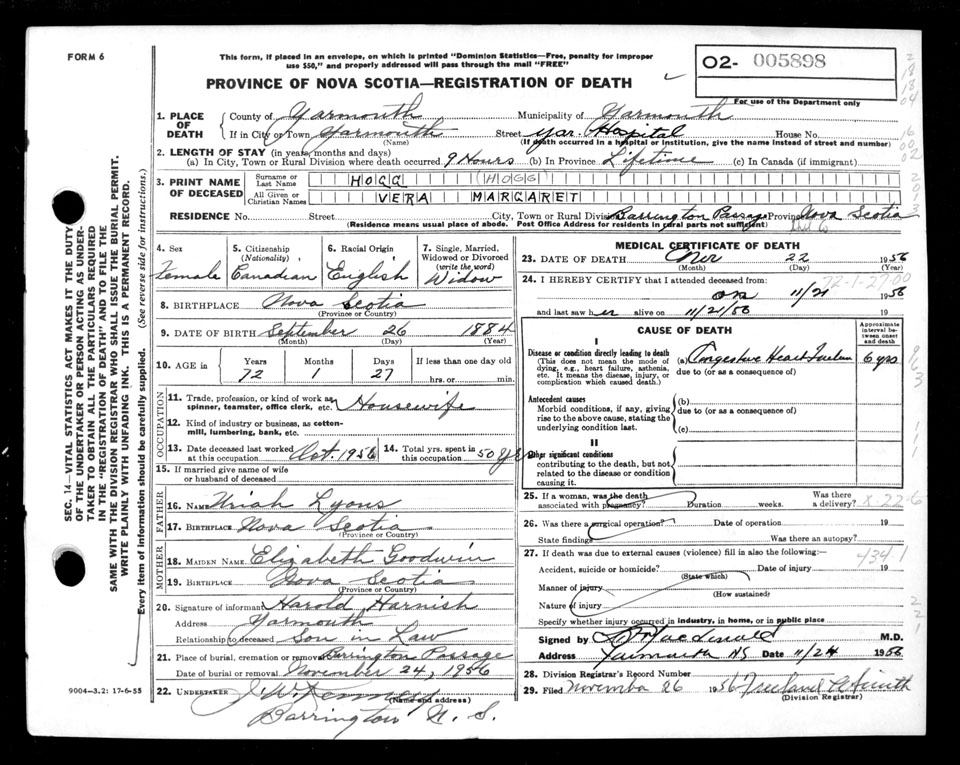 FORM 6
This form, if placed in an envelope, on which is printed "Dominion Statistics—Free, penalty for improper
use $50," and properly addressed will pass through the mail "FREE"
PROVINCE OF NOVA SCOTIA—REGISTRATION OF DEATH
O2- 005898
For use of the Department only
1. PLACE OF DEATH County of Yarmouth Municipality of Yarmouth
If in City or Town Yarmouth Street Yar. Hospital House No.
(Name) (If death occurred in a hospital or institution, give the name instead of street and number)
2. LENGTH OF STAY (in years, months and days)
(a) In City, Town or Rural Division where death occurred. 9 Hours (b) In Province Lifetime (c) In Canada (if immigrant)
3. PRINT NAME OF DECEASED Surname or Last Name HOGG HOGG
All Given or Christian Names VERA MARGARET
RESIDENCE No. Street City, Town or Rural Division Barrington Passage Province Nova Scotia
(Residence means usual place of abode. Post Office Address for residents in rural parts not sufficient)
4. Sex Female
5. Citizenship (Nationality) Canadian
6. Racial Origin English
7. Single, Married, Widowed or Divorced (write the word) Widow
8. BIRTHPLACE Nova Scotia
(Province or Country)
9. DATE OF BIRTH September 26 1884
(Month) (Day) (Year)
10. AGE in Years Months Days If less than one day old
72 1 27 hrs. or min.
OCCUPATION
11. Trade, profession, or kind of work as spinner, teamster, office clerk, etc. Housewife
12. Kind of industry or business, as cotton-mill, lumbering, bank, etc.
13. Date deceased last worked at this occupation Oct. 1956
14. Total yrs. spent in this occupation 50 Yrs
15. If married give name of wife or husband of deceased
FATHER
16. Name Uriah Lyons
17. Birthplace Nova Scotia
(Province or Country)
MOTHER
18. MAIDEN NAME Elizabeth Goodwin
19. BIRTHPLACE Nova Scotia
(Province or Country)
20. Signature of informant Harold Harnish
Address Yarmouth
Relationship to deceased Son in Law
21. Place of burial, cremation or removal Barrington Passage
Date of burial or removal November 24, 1956
22. UNDERTAKER
(Name and address)
Barrington N. S.
9004—3.2: 17-6-55
MEDICAL CERTIFICATE OF DEATH
23. DATE OF DEATH Nov 22 1956
(Month) (Day) (Year)
24. I HEREBY CERTIFY that I attended deceased from:
72-1-27-00
on 11/21 1956
and last saw her alive on 11/21/56 19
CAUSE OF DEATH
Approximate interval between onset and death
I
Disease or condition directly leading to death
(This does not mean the mode of dying, e.g., heart failure, asthenia, etc. It means the disease, injury, or complication which caused death.)
(a) Congestive Heart Failure 6 yrs
due to (or as a consequence of)
Antecedent causes
Morbid conditions, if any, giving rise to the above cause, stating the underlying condition last.
(b)
due to (or as a consequence of)
(c)
II
Other significant conditions
contributing to the death, but not related to the disease or condition causing it.
25. If a woman, was the death associated with pregnancy? Duration weeks. Was there a delivery? X-22-6
26. Was there a surgical operation? Date of operation 19
State findings Was there an autopsy?
27. If death was due to external causes (violence) fill in also the following:—
4341
Accident, suicide or homicide? Date of injury 19
(State which)
Manner of injury
(How sustained)
Nature of injury
Specify whether injury occurred in industry, in home, or in public place
Signed by MacDonald M.D.
Address Yarmouth NS Date 11/24 1956
28. Division Registrar's Record Number
29. Filed November 26 1956 Freeland A Smith
(Division Registrar)
SEC. 14—VITAL STATISTICS ACT MAKES IT THE DUTY
OF THE UNDERTAKER OR PERSON ACTING AS UNDER-
TAKER TO OBTAIN ALL THE PARTICULARS REQUIRED
IN THE "REGISTRATION OF DEATH" AND TO FILE THE
SAME WITH THE DIVISION REGISTRAR WHO SHALL ISSUE THE BURIAL PERMIT.
WRITE PLAINLY WITH UNFADING INK. THIS IS A PERMANENT RECORD.
Every item of information should be carefully supplied. (See reverse side for instructions.)